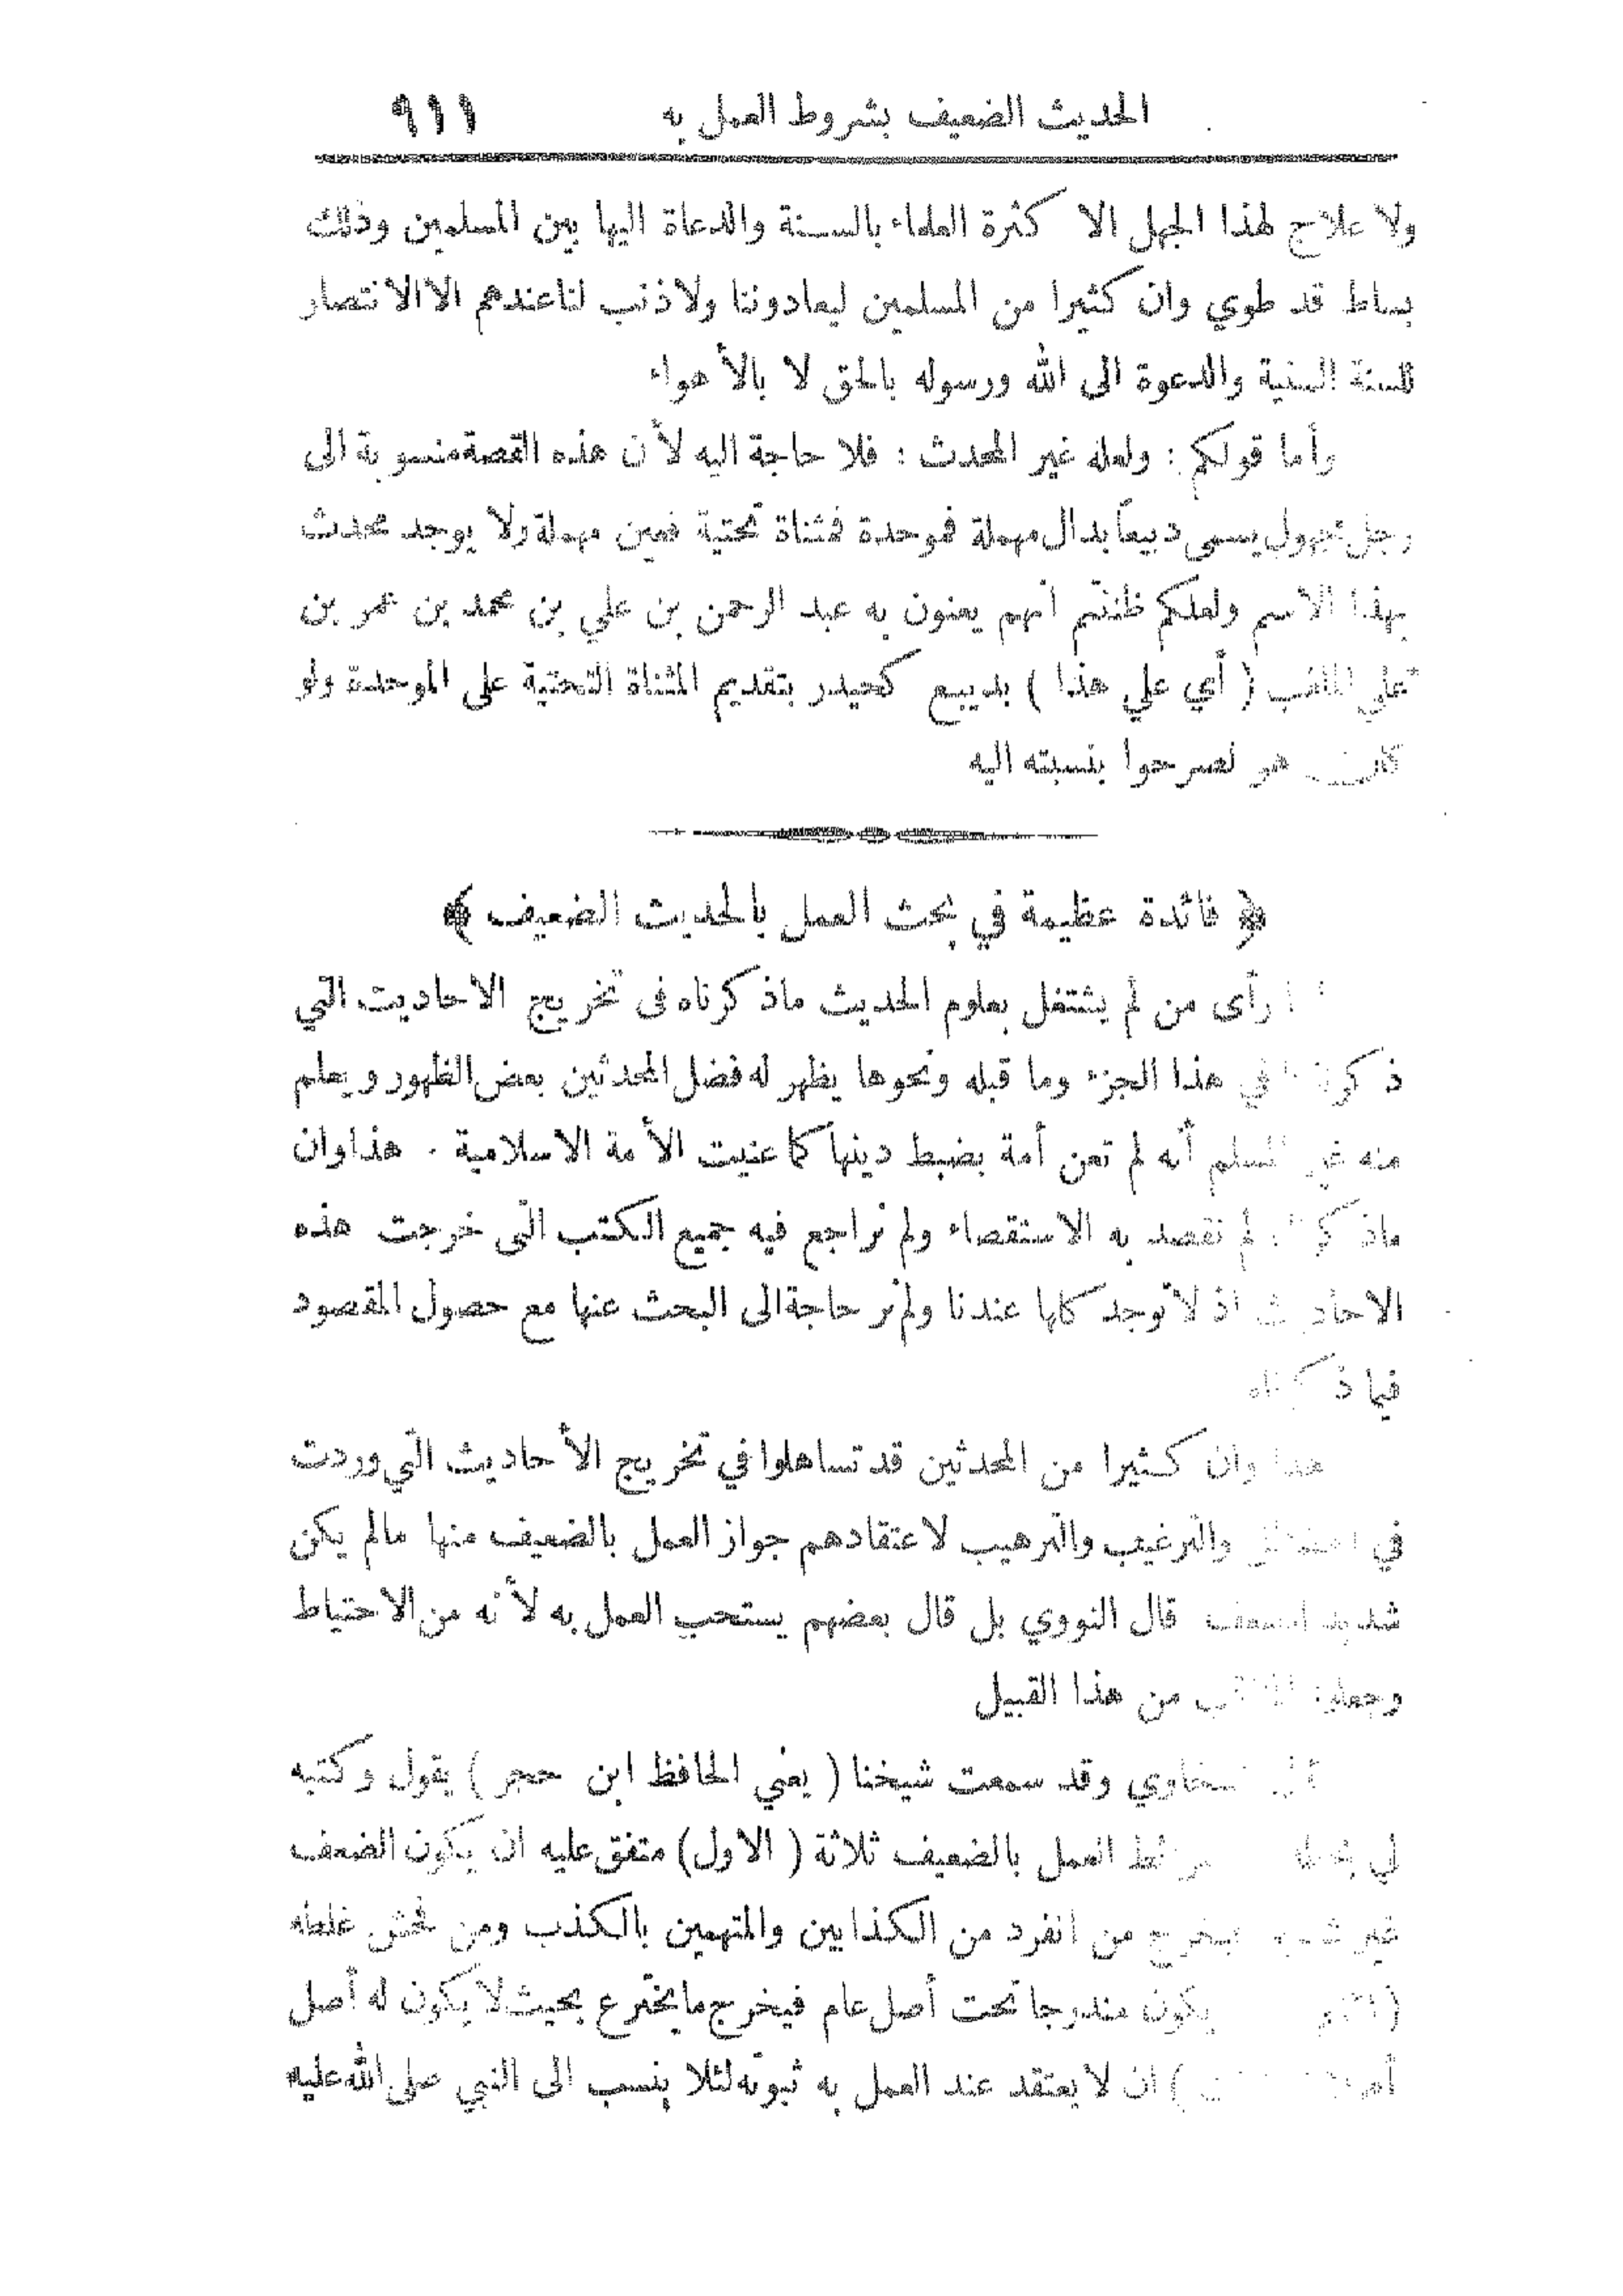 الحديث الضعيف بشروط العمل به ٩١١
ولا علاج لهذا الجهل الا كثرة العلماء بالسنة والدعاة اليها بين المسلمين وذلك
بساط قد طوي وان كثيرا من المسلمين ليعادوننا ولا ذنب لنا عندهم الا الانتصار
للسنة السنية والدعوة الى الله ورسوله بالحق لا بالأهواء
وأما قولكم : ولعله غير المحدث : فلا حاجة اليه لأن هذه القصة منسوبة الى
رجل مجهول يسمى دبيعاً بدال مهملة فموحدة فمثناة تحتية فعين مهملة ولا يوجد محدث
بهذا الاسم ولعلكم ظننتم انهم يعنون به عبد الرحمن بن علي بن محمد بن عمر بن
علي الملقب ( أي علي هذا ) بديبع كحيدر بتقديم المثناة التحتية على الموحدة ولو
كان هو لصرحوا بنسبته اليه
﴿ فائدة عظيمة في بحث العمل بالحديث الضعيف ﴾
رأى من لم يشتغل بعلوم الحديث ماذكرناه فى تخريج الاحاديث التي
ذكرناها في هذا الجزء وما قبله ونحوها يظهر له فضل المحدثين بعض الظهور ويعلم
منه غير المسلم أنه لم تعن أمة بضبط دينها كما عنيت الأمة الاسلامية . هذا وان
ماذكرناه لم نقصد به الاستقصاء ولم نراجع فيه جميع الكتب التي خرجت هذه
الاحاديث اذ لا توجد كلها عندنا ولم نر حاجة الى البحث عنها مع حصول المقصود
فيما ذكرناه
هذا وان كثيرا من المحدثين قد تساهلوا في تخريج الأحاديث التي وردت
في والترغيب والترهيب لاعتقادهم جواز العمل بالضعيف منها مالم يكن
شديد الضعف قال النووي بل قال بعضهم يستحب العمل به لأنه من الاحتياط
وجعلوا المناقب من هذا القبيل
قال السخاوي وقد سمعت شيخنا ( يعني الحافظ ابن حجر ) يقول وكتبه
لي بخطه شرائط العمل بالضعيف ثلاثة ( الاول ) متفق عليه ان يكون الضعف
غير شديد فيخرج من انفرد من الكذابين والمتهمين بالكذب ومن فحش غلطه
( الثاني يكون مندرجا تحت أصل عام فيخرج ما يخترع بحيث لا يكون له أصل
أصلا ) ان لا يعتقد عند العمل به ثبوته لئلا ينسب الى النبي صلى الله عليه